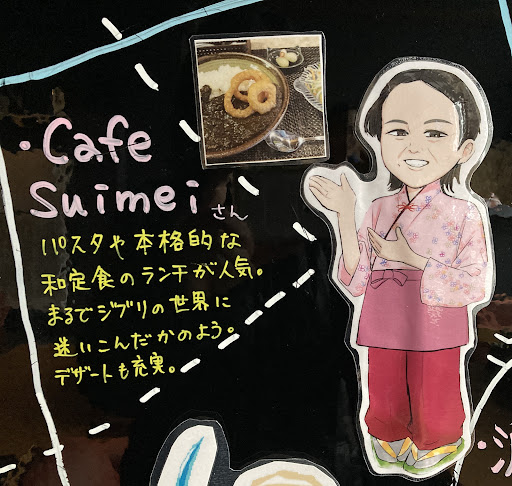 ・Cafe
Suimei さん
パスタや本格的な
和定食のランチが人気。
まるでジブリの世界に
迷いこんだかのよう。
デザートも充実。